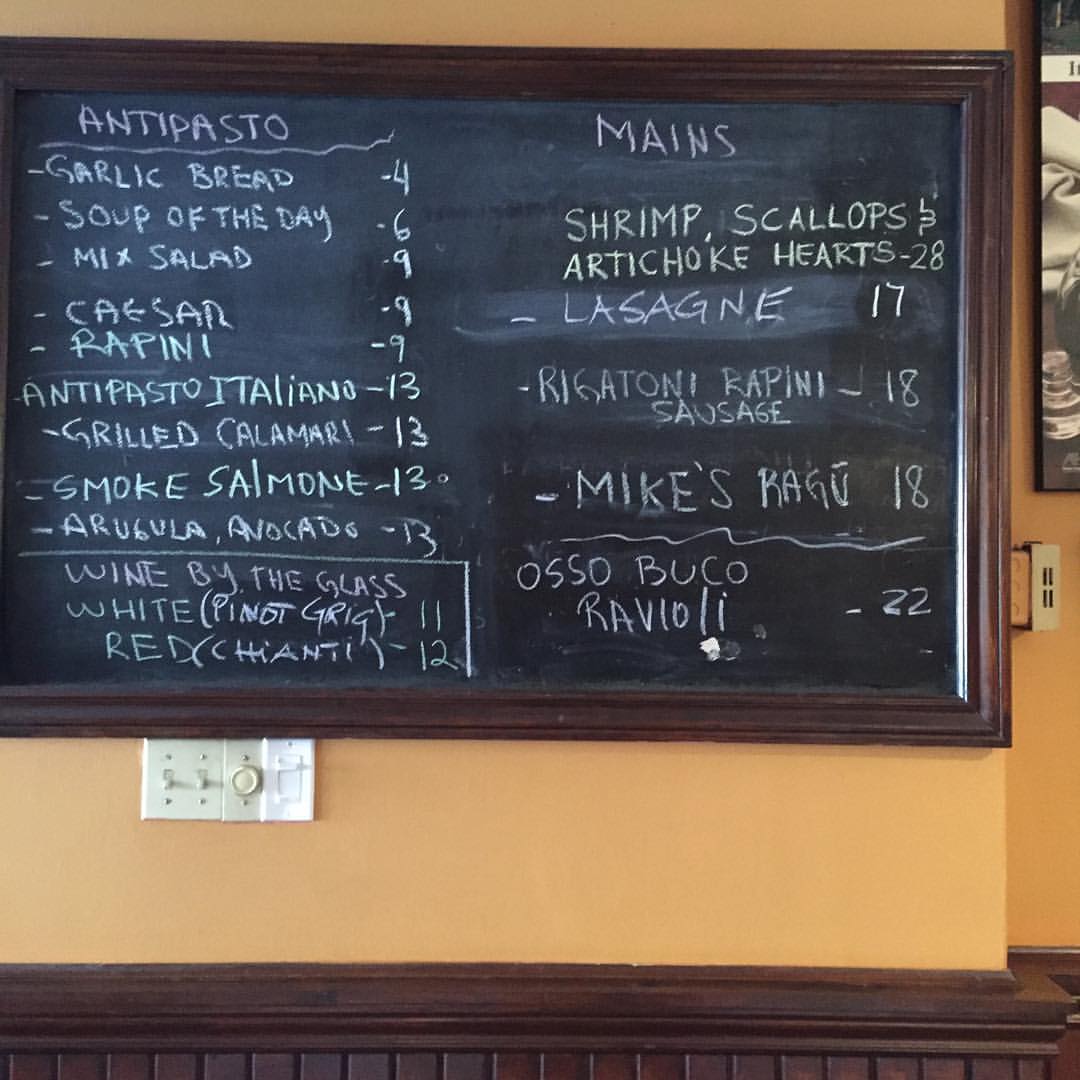 ANTIPASTO
-GARLIC BREAD -4
- SOUP OF THE DAY -6
- MIX SALAD -9
- CAESAR -9
- RAPINI -9
-ANTIPASTO ITALiANO -13
-GRILLED CALAMARI -13
- SMOKE SAlMONE -13
- ARUGULA, AVOCADO -13
WINE BY THE GLASS
WHITE (PINOT GRIG)- 11
RED (CHIANTI) - 12
MAINS
SHRIMP, SCALLOPS &
ARTICHOKE HEARTS -28
- LASAGNE 17
-RIGATONI RAPINI - 18
SAUSAGE
- MIKE'S RAGÚ 18
OSSO BUCO
RAVIOli - 22